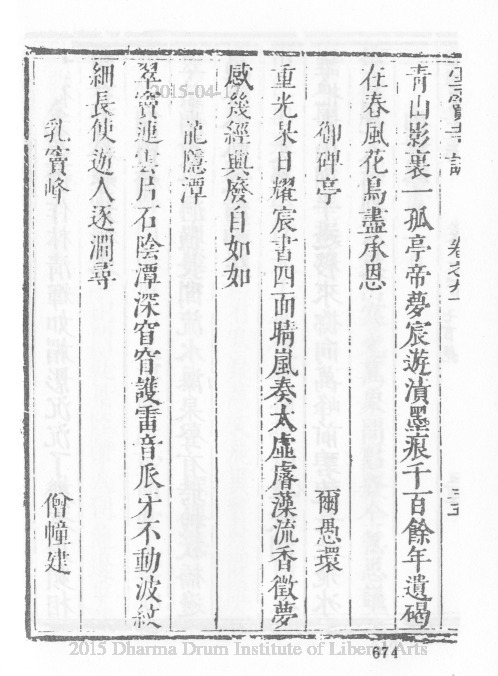 雪竇寺誌 卷之九
青山影裏一孤亭帝夢宸遊漬墨痕千百餘年遺碣
在春風花鳥盡承恩
御碑亭 爾愚環
重光杲日耀宸書四面晴嵐奏太虛睿藻流香徵夢
感幾經興廢自如如
龍隱潭
翠竇連雲片石陰潭深窅窅護雷音爪牙不動波紋
細長使遊人逐澗尋
乳竇峰 僧幢建
2015-04-17
674
2015 Dharma Drum Institute of Liberal Arts